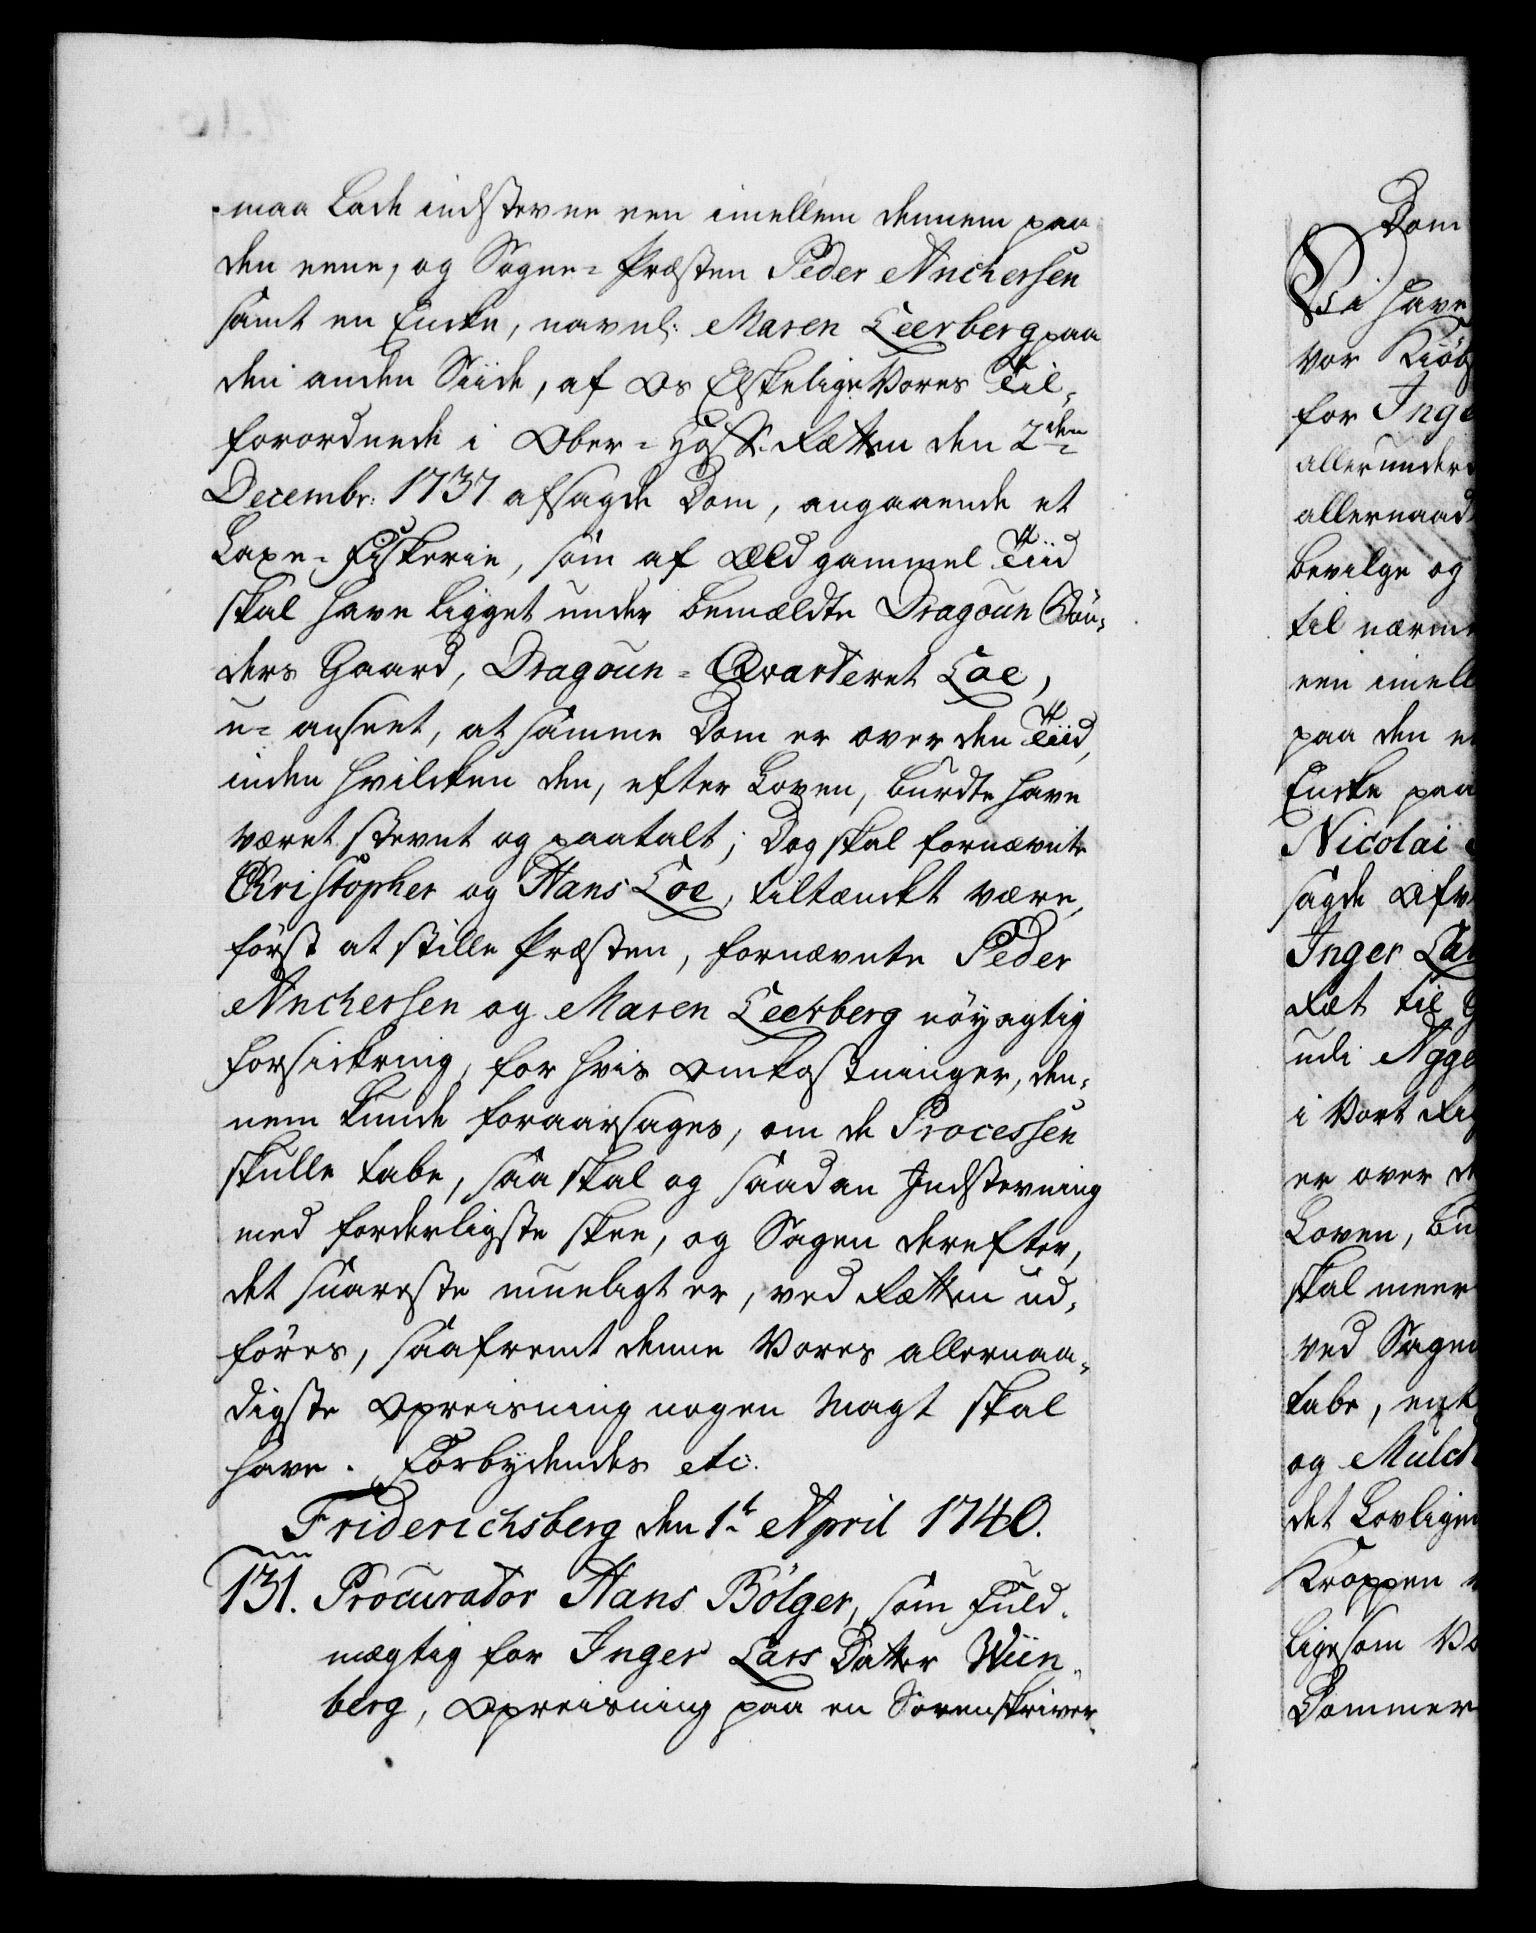 maa lade indstevne een imellem dennem paa
den eene, og Sogne-Præsten Peder Anchersen
samt en Encke, navnl: Maren Leerberg paa
den anden Siide, af Os Elskelige Vores Til-
forordnede i Ober-Hoff-Rætten den 2den
Decembr: 1737 afsagde Dom, angaaende et
Laxe-Fiskerie, som af Æld gammel Tiid
skal have ligget under bemældte Dragoun Bön-
ders Gaard, Dragoun-Qvarteret Loe,
u-anseet, at samme Dom er over den Tiid,
inden hvilcken den, efter Loven, burdte have
været stevnt og paatalt; Dog skal fornævnte
Christopher og Hans Loe, tiltænckt være,
först at stille Præsten, fornævnte Peder
Anchersen og Maren Leerberg nöyagtig
forsickring, for hvis Omkostninger, den-
nem kunde foraarsages, om de Processen
skulle tabe, saa skal og saadan Indstevning
med forderligste skee, og Sagen derefter,
det snareste mueligt er, ved Rætten ud-
föres, saafremt denne Vores allernaa-
digste Opreisning nogen Magt skal
have. Forbydendes etc.
Friderichsberg den 1t April 1740.
131. Procurator Hans Bölger, som Fuld-
mægtig for Inger Lars Datter Wiin-
berg, Opreisning paa en Sorenskriver-
Dom
Vi have
vor Kiöb
for Inge
allerunder
allernaad
bevilge og
til nærme
een imell
paa den e
Encke paa
Nicolai
sagde Afv
Inger La
Ræt til
udi Agge
i Vort Ri
er over d
Loven, bu
skal meer
ved Sagen
tabe, ent
og Mulct
det Lovlige
Kroppen
ligesom Vo
Dommer